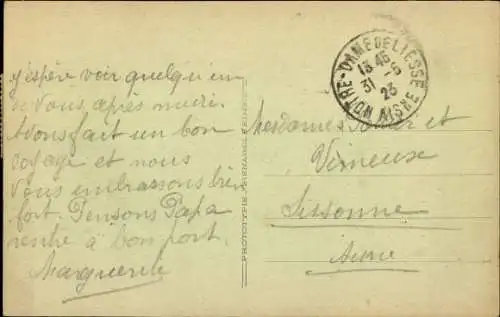 J'espère voir quelqu'un
de Vous après midi.
Avons fait un bon
voyage et nous
Vous embrassons bien
fort. Pensons Papa
rentré à bon port.
Marguerite
NOTRE-DAME DE LIESSE
13 45
31 - 5
23
AISNE
PHOTOTYPIE
Mesdames et
Vermeuse
Sissonne
Aisne